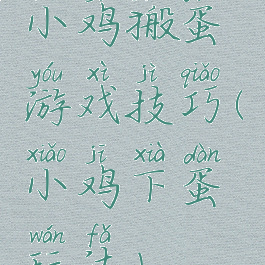 小鸡搬蛋
yóu xì jì qiǎo
游戏技巧(
xiǎo jī xià dàn
小鸡下蛋
wán fǎ
玩法)